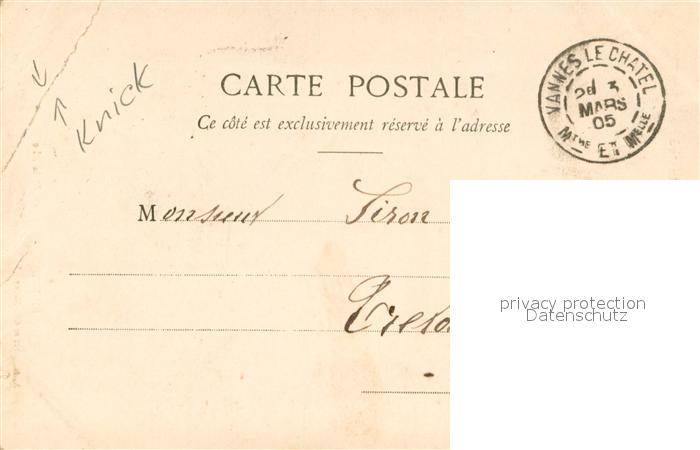 Knick
CARTE POSTALE
Ce côté est exclusivement réservé à l'adresse
VANNES LE CHATEL
MARS
05
MTHE ET MELLE
Monsieur Siron
privacy protection
Datenschutz